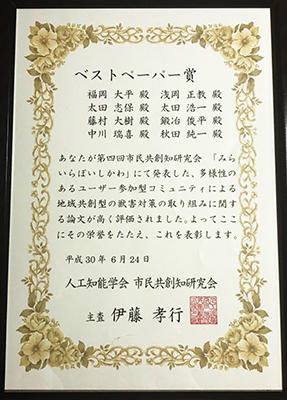 ベストペーパー賞
福岡 大平 殿 浅岡 正教 殿
太田 志保 殿 太田 浩一 殿
藤村 大樹 殿 鍛冶 俊平 殿
中川 瑞喜 殿 秋田 純一 殿
あなたが第四回市民共創知研究会 「みら
いらぼいしかわ」にて発表した、多様性の
あるユーザー参加型コミュニティによる
地域共創型の獣害対策の取り組みに関す
る論文が高く評価されました。よってここ
にその栄誉をたたえ、これを表彰します。
平成30年 6月24日
人工知能学会 市民共創知研究会
主査 伊藤 孝行